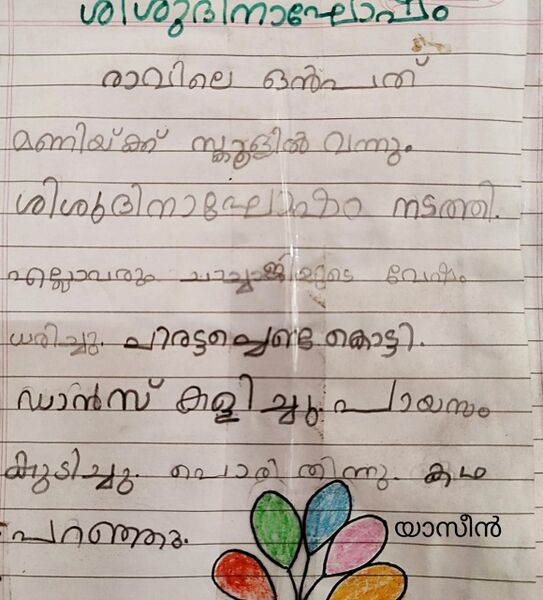 ശിശുദിനാഘോഷം
രാവിലെ ഒൻപത്
മണിയ്ക്ക് സ്കൂളിൽ വന്നു.
ശിശുദിനാഘോഷം നടത്തി.
എല്ലാവരും ചാച്ചാജിയുടെ വേഷം
ധരിച്ചു. ചിരട്ടച്ചെണ്ട കൊട്ടി.
ഡാൻസ് കളിച്ചു. പായസം
കുടിച്ചു. പൊരി തിന്നു. കഥ
പറഞ്ഞു.
യാസീൻ